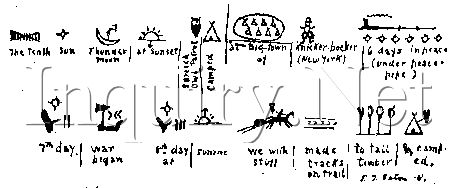 The Tenth Sun | Thunder moon | at Sunset | Camped | at Big-town of | Knicker-bocker (NEW YORK) | 6 days in peace (under peace pipe)
Inquiry.Net
7th day. | war began | 8th day at | Sunrise | we with stuff | made tracks on trail | to tall timber | & camped.